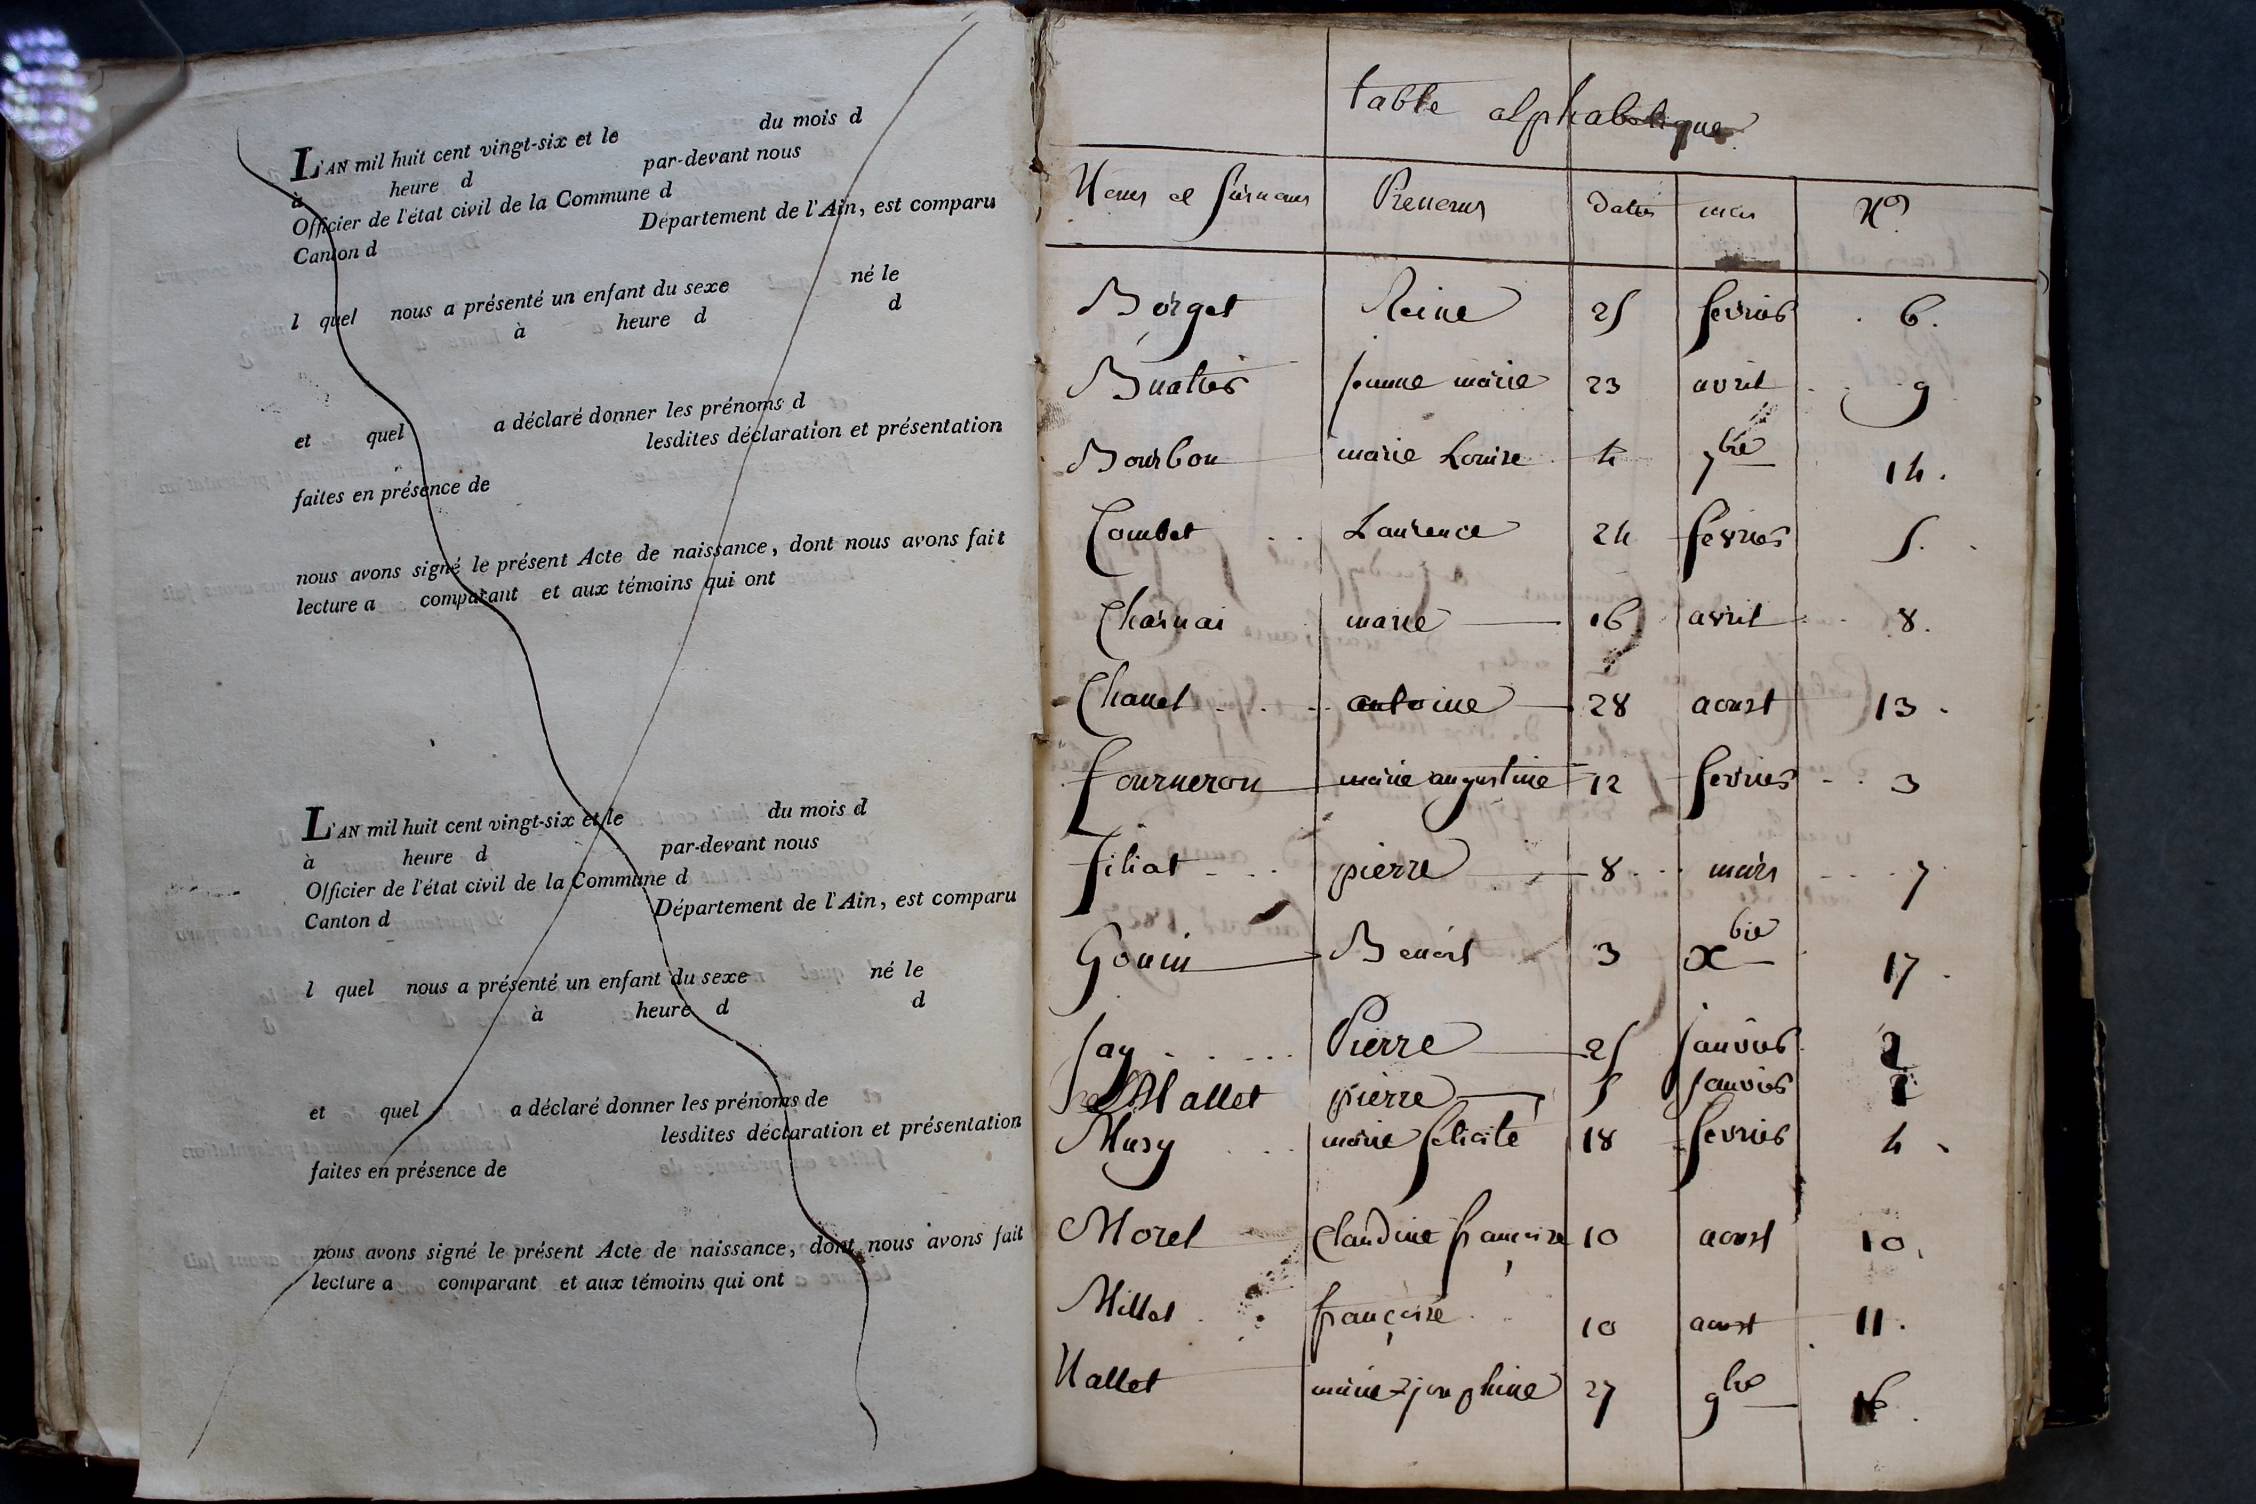 L'AN mil huit cent vingt-six et le du mois d
à heure d par-devant nous
Officier de l'état civil de la Commune d
Canton d Département de l'Ain, est comparu
l quel nous a présenté un enfant du sexe né le
à heure d d
et quel a déclaré donner les prénoms d
lesdites déclaration et présentation
faites en présence de
nous avons signé le présent Acte de naissance, dont nous avons fait
lecture a comparant et aux témoins qui ont
L'AN mil huit cent vingt-six et le du mois d
à heure d par-devant nous
Officier de l'état civil de la Commune d
Canton d Département de l'Ain, est comparu
l quel nous a présenté un enfant du sexe né le
à heure d d
et quel a déclaré donner les prénoms de
lesdites déclaration et présentation
faites en présence de
nous avons signé le présent Acte de naissance, dont nous avons fait
lecture a comparant et aux témoins qui ont
table alphabetique
Noms et surnoms Prenoms Dates mois No
Borget Reine 25 fevrier 6.
Buattier jeanne marie 23 avril 9
Bourbon marie Louise 4 7bre 14.
Combet Laurence 24 fevrier 5.
Charnai marie 16 avril 8.
Chanel antoine 28 aoust 13.
fourneron marie augustine 12 fevrier 3
filiat pierre 8 mars 7
Gonin Benoit 3 xbre 17.
Jay Pierre 25 janvier 2
Mallet pierre 5 janvier 1
Musy marie felicité 18 fevrier 4
Morel Claudine françoise 10 aoust 10.
Millet françoise 10 aoust 11.
Nallet marie josephine 27 9bre 16.